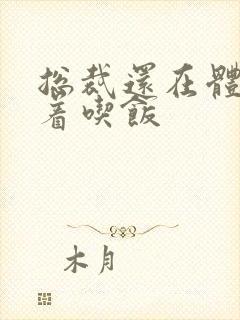 总裁還在體
着喫飯
木月